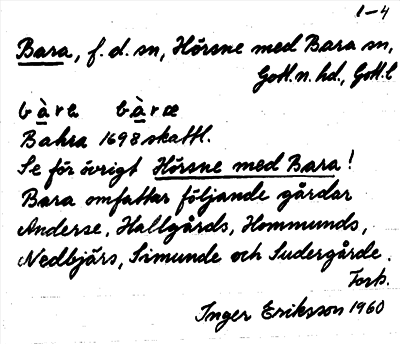 1-4
Bara, f. d. sn, Hörsne med Bara sn,
Gotl. n. hd., Gotl. l
bàra bàræ
Bahra 1698 skattl.
Se för övrigt Hörsne med Bara!
Bara omfattar följande gårdar
Anderse, Hallgårds, Hommunds,
Nedbjärs, Simunde och Sudergårde.
Torp.
Inger Eriksson 1960